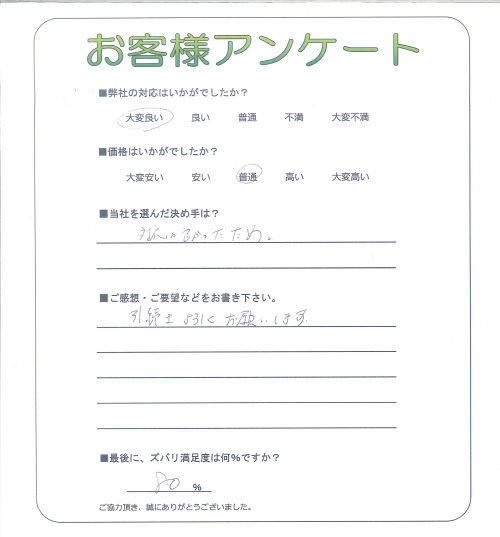 お客様アンケート
■弊社の対応はいかがでしたか？
大変良い 良い 普通 不満 大変不満
■価格はいかがでしたか？
大変安い 安い 普通 高い 大変高い
■当社を選んだ決め手は？
ったため。
■ご感想・ご要望などをお書き下さい。
引続き よろしく お願いします
■最後に、ズバリ満足度は何%ですか？
80 %
ご協力頂き、誠にありがとうございました。